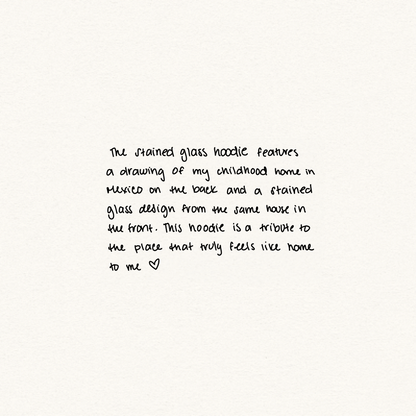 The stained glass hoodie features
a drawing of my childhood home in
Mexico on the back and a stained
glass design from the same house in
the front. This hoodie is a tribute to
the place that truly feels like home
to me ♡